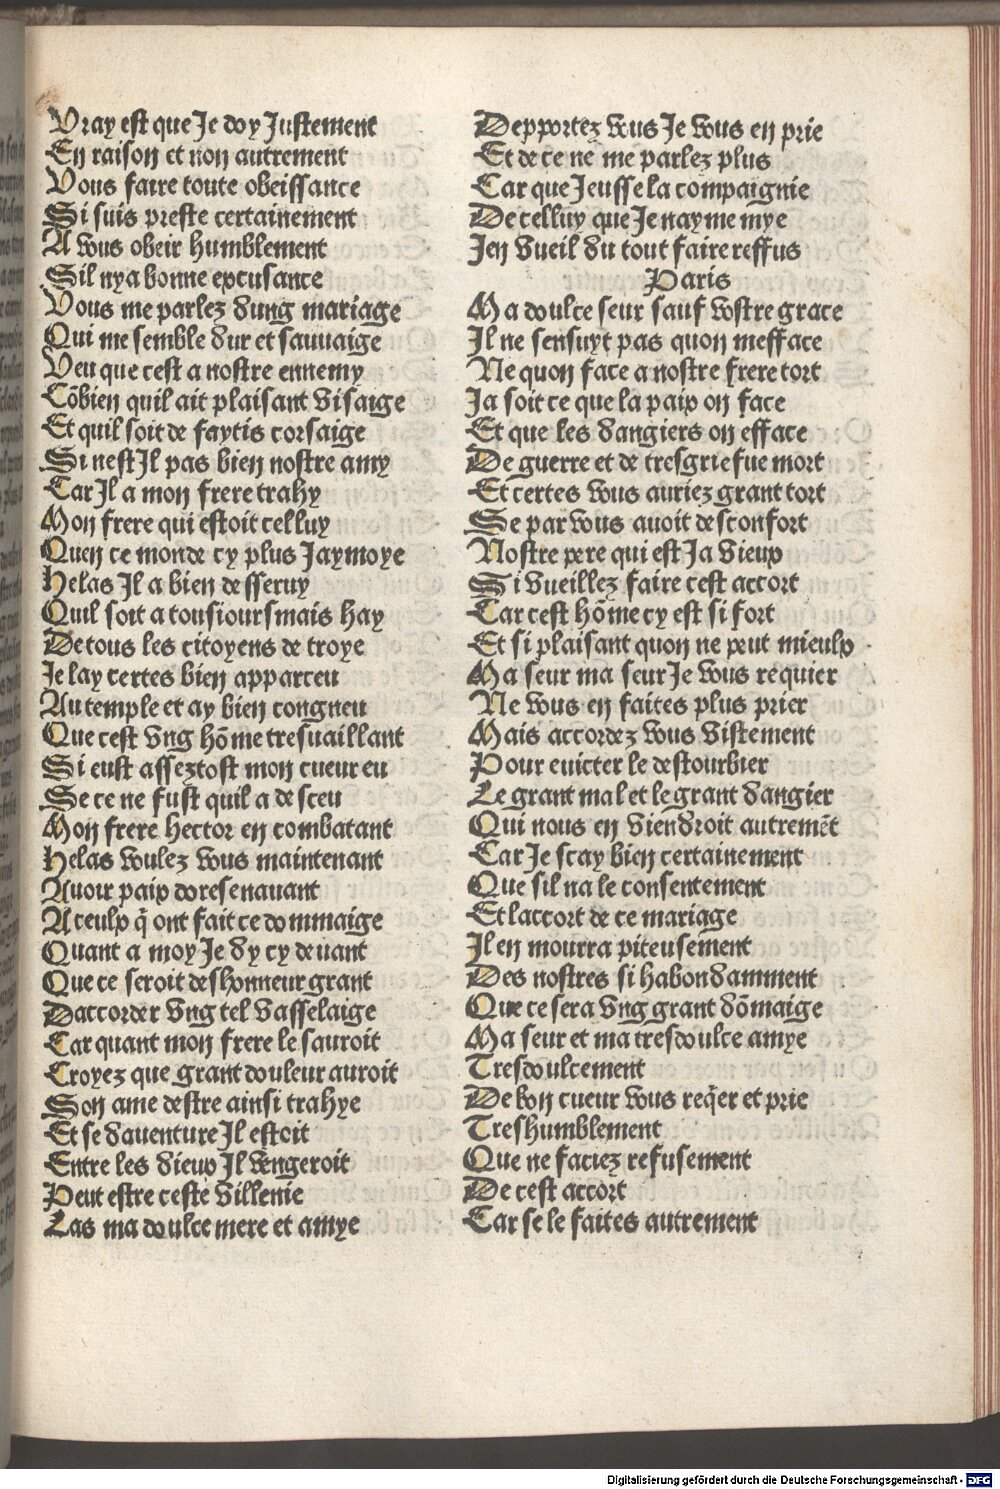 Vray est que Je doy Justement
En raison et non autrement
Vous faire toute obeissance
Si suis preste certainement
A vous obeir humblement
Sil nya bonne excusance
Vous me parlez dung mariage
Qui me semble dur et sauuaige
Veu que cest a nostre ennemy
Cōbien quil ait plaisant visaige
Et quil soit de faytis corsaige
Si nest Jl pas bien nostre amy
Car Jl a mon frere trahy
Mon frere qui estoit celluy
Quen ce monde cy plus Jaymoye
Helas Jl a bien desseruy
Quil soit a tousioursmais hay
De tous les citoyens de troye
Je lay certes bien apparceu
Au temple et ay bien congneu
Que cest vng hōme tresuaillant
Si eust asseztost mon cueur eu
Se ce ne fust quil a desceu
Mon frere hector en combatant
Helas voulez vous maintenant
Auoir paix doresenauant
A ceulx q̄ ont fait ce dommaige
Quant a moy Je dy cy deuant
Que ce seroit deshonneur grant
Daccorder vng tel vasselaige
Car quant mon frere le sauroit
Croyez que grant douleur auroit
Son ame destre ainsi trahye
Et se dauenture Jl estoit
Entre les dieux Jl vengeroit
Peut estre ceste villenie
Las ma doulce mere et amye
Depportez vous Je vous en prie
Et de ce ne me parlez plus
Car que Jeusse la compaignie
De celluy que Je nayme mye
Jen vueil du tout faire reffus
Paris
Ma doulce seur sauf vostre grace
Jl ne sensuyt pas quon mefface
Ne quon face a nostre frere tort
Ja soit ce que la paix on face
Et que les dangiers on efface
De guerre et de tresgriefue mort
Et certes vous auriez grant tort
Se par vous auoit desconfort
Nostre pere qui est Ja vieux
Si vueillez faire cest accort
Car cest hōme cy est si fort
Et si plaisant quon ne peut mieulx
Ma seur ma seur Je vous requier
Ne vous en faites plus prier
Mais accordez vous vistement
Pour euicter le destourbier
Le grant mal et le grant dangier
Qui nous en viendroit autremēt
Car Je scay bien certainement
Que sil na le consentement
Et laccort de ce mariage
Jl en mourra piteusement
Des nostres si habondamment
Que ce sera vng grant dōmaige
Ma seur et ma tresdoulce amye
Tresdoulcement
De bon cueur vous req̄er et prie
Treshumblement
Que ne faciez refusement
De cest accort
Car se le faites autrement
Digitalisierung gefördert durch die Deutsche Forschungsgemeinschaft - DFG